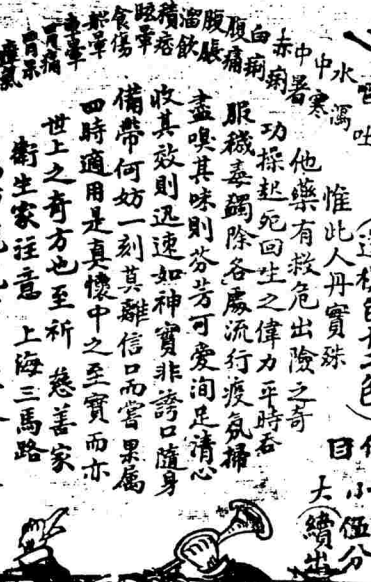 吐
水瀉
中寒
中暑
赤痢
白痢
腹痛
腹脹
溜飲
積痞
眩暈
食傷
船暈
車暈
胃痛
胃呆
目
小伍分
大(續出
惟此人丹實殊
他藥有救危出險之奇
功操起死回生之偉力平時吞
服穢毒蠲除各處流行疫氛掃
盡嗅其味則芬芳可愛洵足清心
收其效則迅速如神實非誇口隨身
備帶何妨一刻莫離信口而嘗果属
四時適用是真懷中之至寶而亦
世上之奇方也至祈 慈善家
衛生家注意 上海三馬路